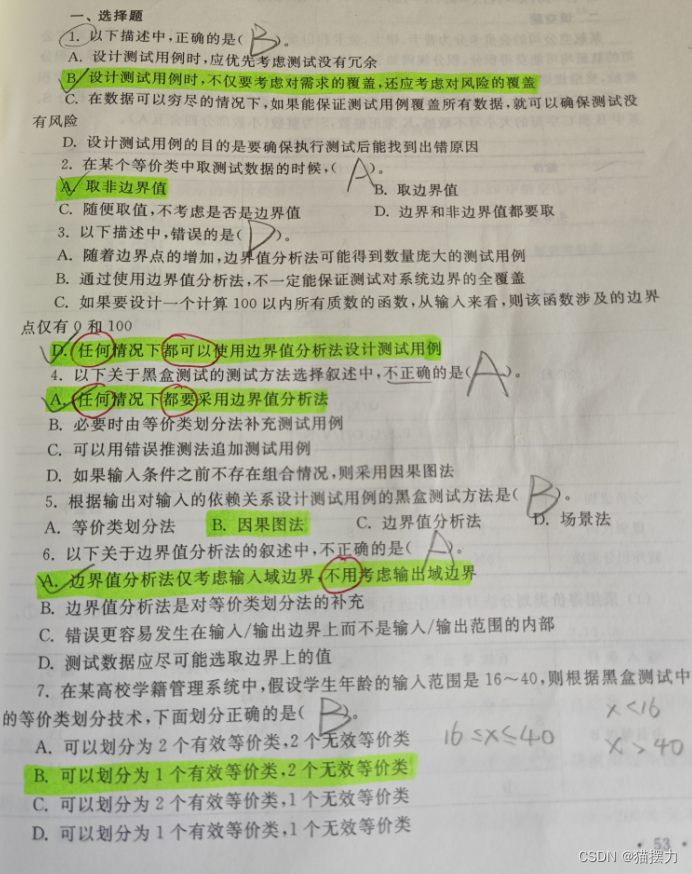 一、选择题
1. 以下描述中,正确的是( B )。
A. 设计测试用例时,应优先考虑测试没有冗余
B. 设计测试用例时,不仅要考虑对需求的覆盖,还应考虑对风险的覆盖
C. 在数据可以穷尽的情况下,如果能保证测试用例覆盖所有数据,就可以确保测试没
有风险
D. 设计测试用例的目的是要确保执行测试后能找到出错原因
2. 在某个等价类中取测试数据的时候,( A )。
A. 取非边界值 B. 取边界值
C. 随便取值,不考虑是否是边界值 D. 边界和非边界值都要取
3. 以下描述中,错误的是( D )。
A. 随着边界点的增加,边界值分析法可能得到数量庞大的测试用例
B. 通过使用边界值分析法,不一定能保证测试对系统边界的全覆盖
C. 如果要设计一个计算 100 以内所有质数的函数,从输入来看,则该函数涉及的边界
点仅有 0 和 100
D. 任何情况下都可以使用边界值分析法设计测试用例
4. 以下关于黑盒测试的测试方法选择叙述中,不正确的是( A )。
A. 任何情况下都要采用边界值分析法
B. 必要时由等价类划分法补充测试用例
C. 可以用错误推测法追加测试用例
D. 如果输入条件之前不存在组合情况,则采用因果图法
5. 根据输出对输入的依赖关系设计测试用例的黑盒测试方法是( B )。
A. 等价类划分法 B. 因果图法 C. 边界值分析法 D. 场景法
6. 以下关于边界值分析法的叙述中,不正确的是( A )。
A. 边界值分析法仅考虑输入域边界,不用考虑输出域边界
B. 边界值分析法是对等价类划分法的补充
C. 错误更容易发生在输入/输出边界上而不是输入/输出范围的内部
D. 测试数据应尽可能选取边界上的值
7. 在某高校学籍管理系统中,假设学生年龄的输入范围是 16~40,则根据黑盒测试中
的等价类划分技术,下面划分正确的是( B )。 x<16
A. 可以划分为 2 个有效等价类,2 个无效等价类 16≤x≤40 x>40
B. 可以划分为 1 个有效等价类,2 个无效等价类
C. 可以划分为 2 个有效等价类,1 个无效等价类
D. 可以划分为 1 个有效等价类,1 个无效等价类
• 53 •
CSDN @猫摆力